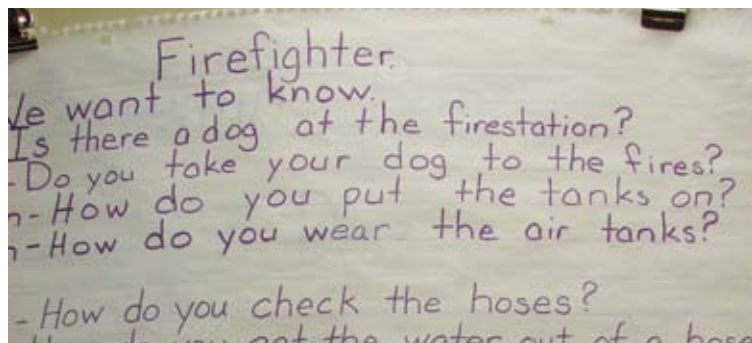 Firefighter.
We want to know.
Is there a dog at the firestation?
- Do you take your dog to the fires?
n - How do you put the tanks on?
n - How do you wear the air tanks?
- How do you check the hoses?
you get the water out of a hose